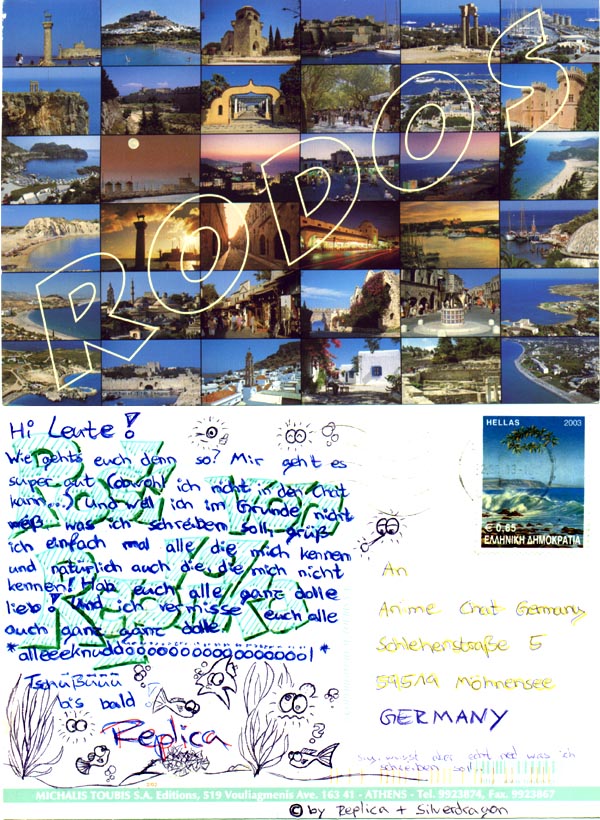 RODOS
Hi Leute!
Wie gehts euch denn so? Mir geht es
super gut (obwohl ich nicht in den Chat
kann...) Und weil ich im Grunde nicht
weiß was ich schreiben soll grüß
ich einfach mal alle die mich kennen
und natürlich auch die die mich nicht
kennen! Hab euch alle ganz dolle
lieb! Und ich vermisse euch alle
auch ganz ganz dolle
Tschüßüüü
bis bald!
Replica
HELLAS 2003
€ 0,65
ΕΛΛΗΝΙΚΗ ΔΗΜΟΚΡΑΤΙΑ
An
Anime Chat Germany
Schlehenstraße 5
59519 Möhnesee
GERMANY
sry. wusst aber echt ned was ich
schreiben soll
MICHALIS TOUBIS S.A. Editions, 519 Vouliagmenis Ave. 163 41 - ATHENS - Tel. 9923874, Fax. 9923867
© by Replica + Silverdragon